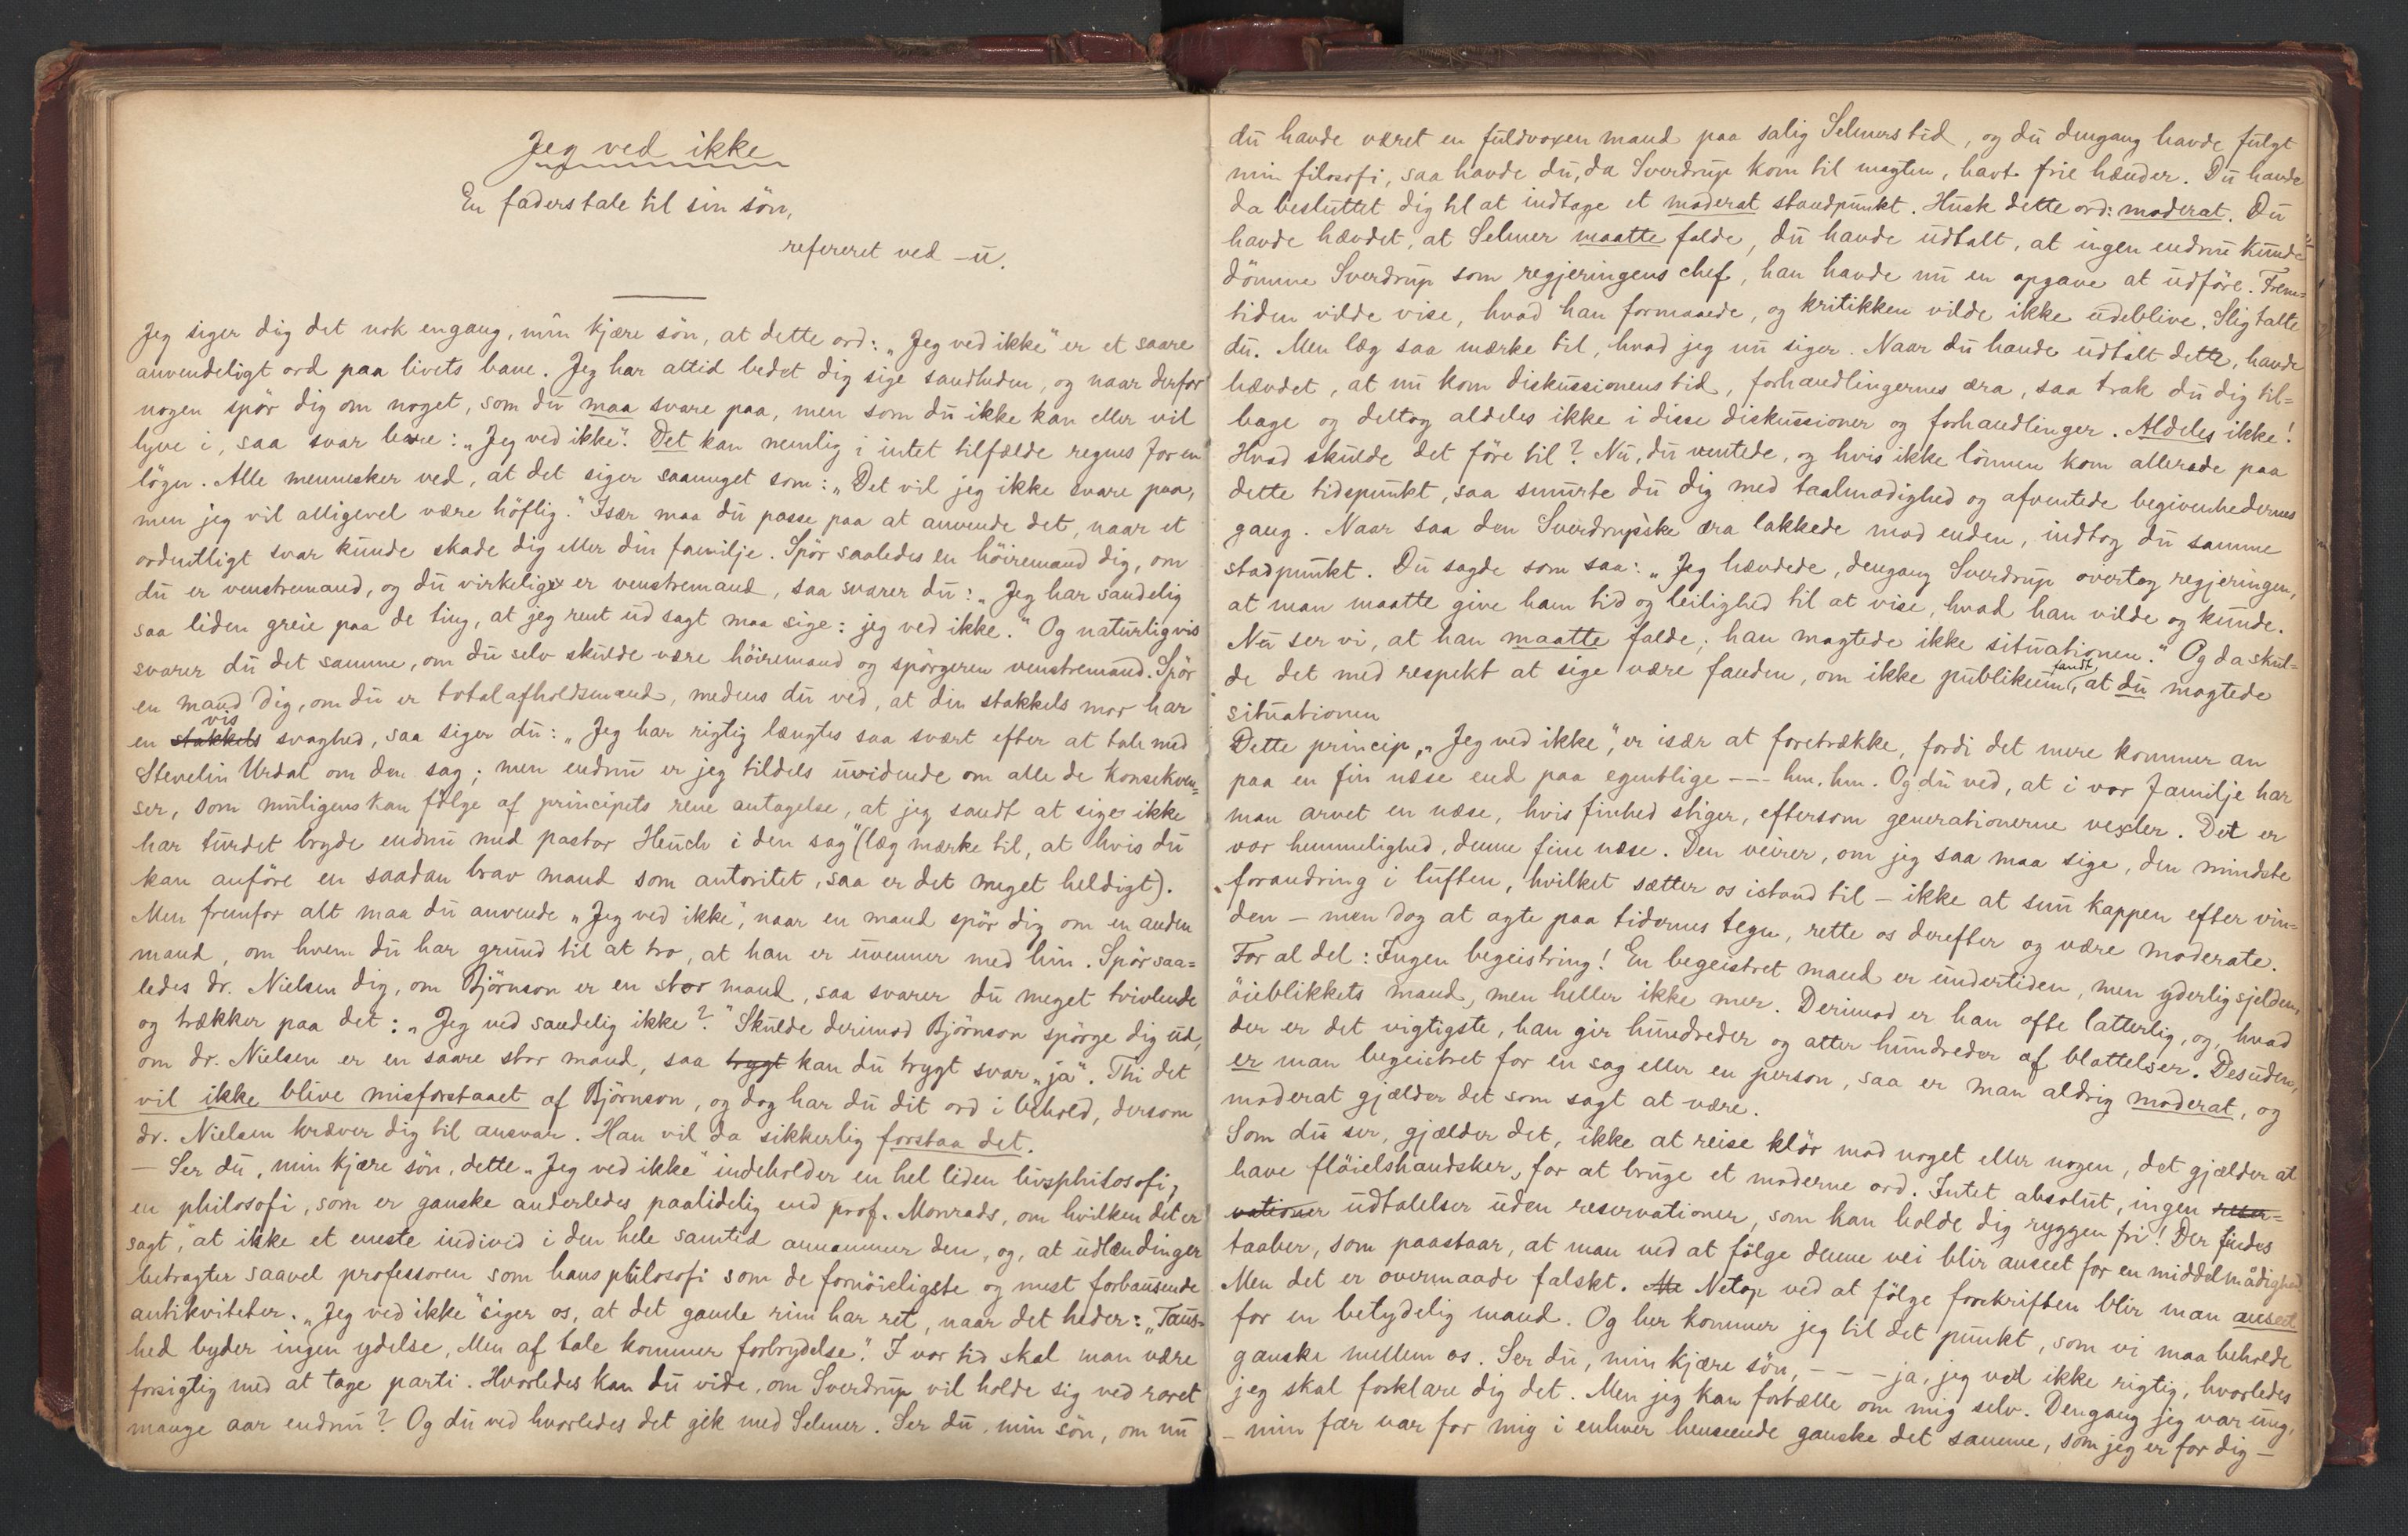 Jeg ved ikke
En faderstale til sin sön,
refereret ved -u.
Jeg siger dig det nok engang, min kjære sön, at dette ord: „Jeg ved ikke" er et saare
anvendeligt ord paa livets bane. Jeg har altid bedet dig sige sandheden, og naar derfor
nogen spör dig om noget, som du maa svare paa, men som du ikke kan eller vil
lyve i, saa svar bare: „Jeg ved ikke". Det kan nemlig i intet tilfælde regnes for en
lögn. Alle mennesker ved, at det siger saameget som: „Det vil jeg ikke svare paa,
men jeg vil alligevel være höflig." Især maa du passe paa at anvende det, naar et
ordentligt svar kunde skade dig eller din familje. Spör saaledes en höiremand dig, om
du er venstremand, og du virkelig er venstremand, saa svarer du: „Jeg har sandelig
saa liden greie paa de ting, at jeg rent ud sagt maa sige: jeg ved ikke." Og naturligvis
svarer du det samme, om du selv skulde være höiremand og spörgeren venstremand. Spör
en mand dig, om du er totalafholdsmand, medens du ved, at din stakkels mor har
en stakkels vis svaghed, saa siger du: „Jeg har rigtig længtes saa svært efter at tale med
Stevelin Urdal om den sag; men endnu er jeg tildels uvidende om alle de konsekven-
ser, som muligens kan fölge af principets rene antagelse, at jeg sandt at sige ikke
har turdet bryde endnu med pastor Heuch i den sag" (læg mærke til, at hvis du
kan anföre en saadan brav mand som autoritet, saa er det meget heldigt).
Men fremfor alt maa du anvende „Jeg ved ikke", naar en mand spör dig om en anden
mand, om hvem du har grund til at tro, at han er uvenner med him. Spör saa-
ledes dr. Nielsen dig, om Björnson er en stor mand, saa svarer du meget tvivlende
og trækker paa det: „Jeg ved sandelig ikke?" Skulde derimod Björnson spörge dig ud,
om dr. Nielsen er en saare stor mand, saa trygt kan du trygt svar „ja". Thi det
vil ikke blive misforstaaet af Björnson, og dog har du dit ord i behold, dersom
dr. Nielsen kræver dig til ansvar. Han vil da sikkerlig forstaa det.
— Ser du, min kjære sön, dette „Jeg ved ikke" indeholder en hel liden livsphilosofi,
en philosofi, som er ganske anderledes paalidelig end prof. Monrads, om hvilken det er
sagt, "at ikke et eneste individ i den hele samtid annammer den, og, at udlændinger
betragter saavel professoren som hans philosofi som de fornöieligste og mest forbausende
antikviteter. „Jeg ved ikke" siger os, at det gamle rim har ret, naar det heder: „Taus-
hed byder ingen ydelse, Men af tale kommer forbrydelse." I vor tid skal man være
forsigtig med at tage parti. Hvorledes kan du vide, om Sverdrup vil holde sig ved roret
mange aar endnu? Og du ved hvorledes det gik med Selmer. Ser du, min sön, om nu
du havde været en fuldvoxen mand paa salig Selmers tid, og du dengang havde fulgt
min filosofi, saa havde du, da Sverdrup kom til magten, havt frie hænder. Du havde
da besluttet dig til at indtage et moderat standpunkt. Husk dette ord: moderat. Du
havde hævdet, at Selmer maatte falde, du havde udtalt, at ingen endnu kunde
dömme Sverdrup som regjeringens chef, han havde nu en opgave at udföre. Frem-
tiden vilde vise, hvad han formaaede, og kritikken vilde ikke udeblive. Slig talte
du. Men læg saa mærke til, hvad jeg nu siger. Naar du havde udtalt dette, havde
hævdet, at nu kom diskussionens tid, forhandlingernes æra, saa trak du dig til-
bage og deltog aldeles ikke i disse diskussioner og forhandlinger. Aldeles ikke!
Hvad skulde det före til? Nu, du ventede, og hvis ikke lönnen kom allerede paa
dette tidspunkt, saa smurte du dig med taalmodighed og afventede begivenhedernes
gang. Naar saa den Sverdrupske æra lakkede mod enden, indtog du samme
stadpunkt. Du sagde som saa: „Jeg hævdede, dengang Sverdrup overtog regjeringen,
at man maatte give ham tid og leilighed til at vise, hvad han vilde og kunde.
Nu ser vi, at han maatte falde; han magtede ikke situationen." Og da skul-
de det med respekt at sige være fanden, om ikke publikum fandt, at du magtede
situationen
Dette princip, „Jeg ved ikke", er især at foretrække, fordi det mere kommer an
paa en fin næse end paa egentlige --- hm, hm. Og du ved, at i vor familje har
man arvet en næse, hvis finhed stiger, eftersom generationerne vexler. Det er
vor hemmelighed, denne fine næse. Den veirer, om jeg saa maa sige, den mindste
forandring i luften, hvilket sætter os istand til — ikke at snu kappen efter vin-
den — men dog at agte paa tidernes tegn, rette os derefter og være moderate.
For al del: Ingen begeistring! En begeistret mand er undertiden, men yderlig sjelden,
öieblikkets mand, men heller ikke mer. Derimod er han ofte latterlig, og, hvad
der er det vigtigste, han gir hundreder og atter hundreder af blottelser. Desuden,
er man begeistret for en sag eller en person, saa er man aldrig moderat, og
moderat gjælder det som sagt at være.
Som du ser, gjælder det, ikke at reise klör mod noget eller nogen, det gjælder at
have flöielshandsker, for at bruge et moderne ord. Intet absolut, ingen reser-
vationer udtalelser uden reservationer, som kan holde dig ryggen fri! Der findes
taaber, som paastaar, at man ved at fölge denne vei blir anseet for en middelmådighed.
Men det er overmaade falskt. Me Netop ved at fölge forskriften blir man anseet
for en betydelig mand. Og her kommer jeg til det punkt, som vi maa beholde
ganske mellem os. Ser du, min kjære sön, — — — ja, jeg ved ikke rigtig, hvorledes
jeg skal forklare dig det. Men jeg kan fortælle om mig selv. Dengang jeg var ung,
— min far var for mig i enhver henseende ganske det samme, som jeg er for dig —